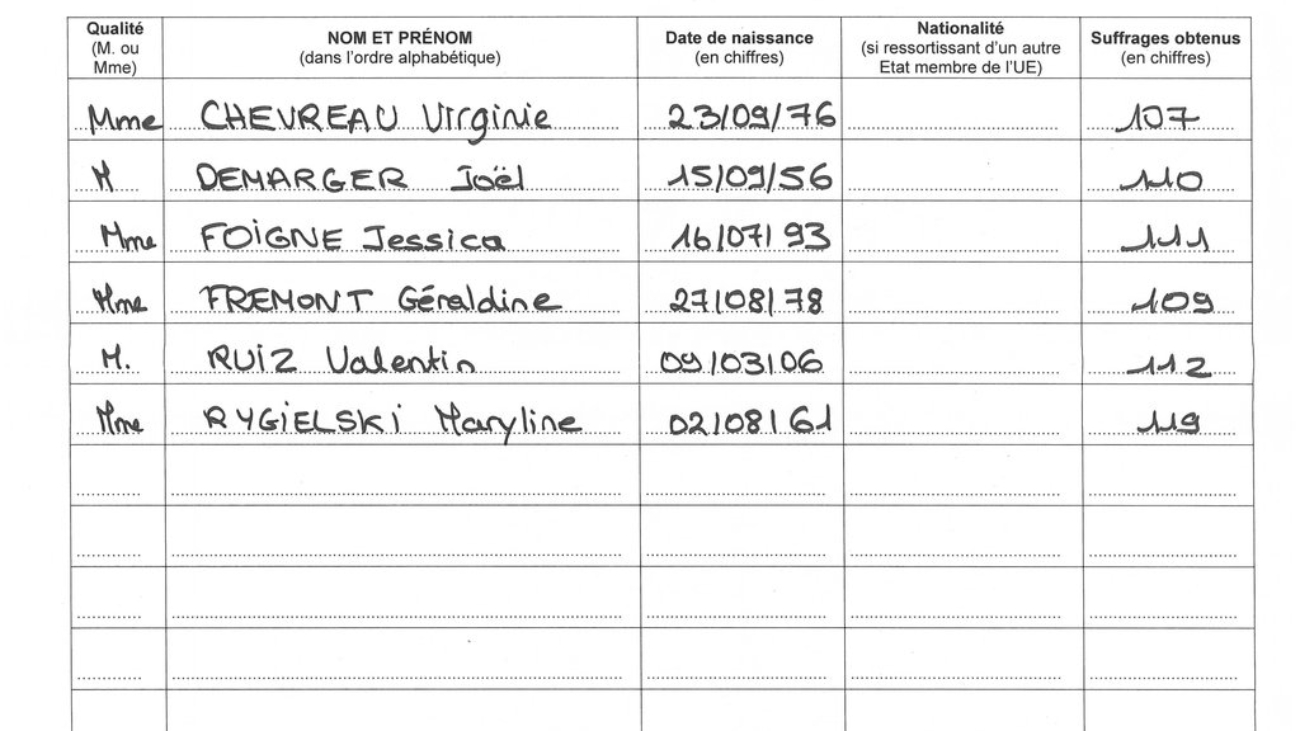 Qualité (M. ou Mme) NOM ET PRÉNOM (dans l'ordre alphabétique) Date de naissance (en chiffres) Nationalité (si ressortissant d'un autre Etat membre de l'UE) Suffrages obtenus (en chiffres)
Mme CHEVREAU Virginie 23/09/76 107
M DEMARGER Joël 15/09/56 110
Mme FOIGNE Jessica 16/07/93 111
Mme FREMONT Géraldine 27/08/78 109
M. RUIZ Valentin 09/03/06 112
Mme RYGIELSKI Maryline 02/08/61 119